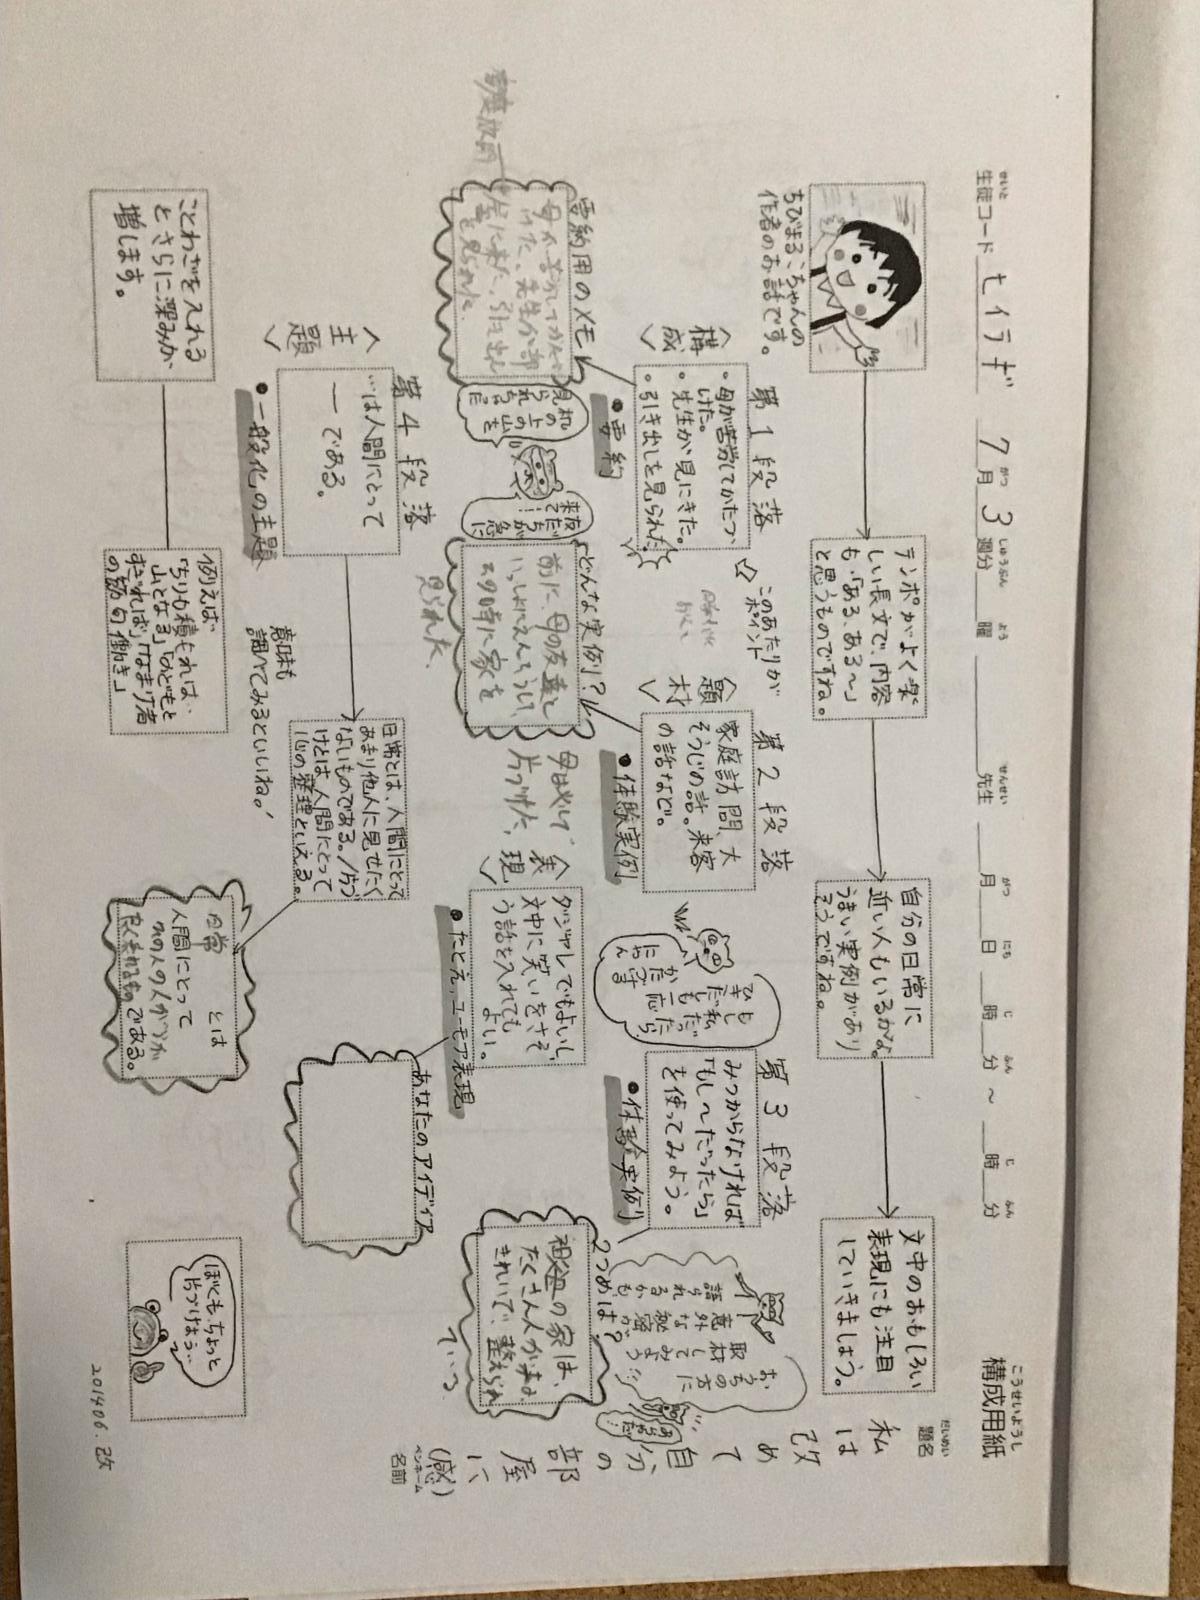 構成用紙
こうせいようし
生徒コード セイテギ 7月3週分 曜 先生 月 日 時 分 ～ 時 分
せいと がつ しゅうぶん よう せんせい がつ にち じ ふん じ ふん
題名
だいめい
私は改めて自分の部屋に、(感)
名前
ペンネーム
ちびまるこちゃんの
作者のお話です。
テンポがよく楽
しい長文で、内容
も「ある、ある～」
と思うものですね。
自分の日常に
近い人もいるかな。
うまい実例があり
そうですね。
文中のおもしろい
表現にも注目
していきましょう。
第1段落
〈構成〉
・母が苦労してかたづ
けた。
・先生が見にきた。
・引き出しを見られた。
●要約
要約用のメモ
机の上の山を
見られちゃった
夜だ!急に
このあたりが
ポイント
第2段落
〈題材〉
家庭訪問、大
そうじの話。来客
の話など。
●体験実例
どんな実例?
前に、母の友達と
その時に家を
見られた。
片づけた。
もし私だったら
第3段落
みつからなければ
「もし～だったら」
を使ってみよう。
●体験実例
2つめは?
祖父母の家は、
たくさん人が来る
きれいで、整えられ
ている
おうちの方に
取材してみよう
意外な秘密が
語られるかも
〈表現〉
ダジャレでもよいし、
文中に笑いをさそ
う話を入れても
よい。
●たとえ、ユーモア表現
あなたのアイディア
第4段落
〈主題〉
…は人間にとって
―である。
●一般化の主題
日常とは、人間にとって
あまり他人に見せたく
ないものである。/片づ
けとは人間にとって
心の整理といえる。
日常 とは
人間にとって
である。
ことわざを入れる
とさらに深みが
増します。
例えば
「ちりも積もれば、
山となる」「のどもと
すぎれば」「なまけ者
の節句働き」
意味も
調べてみるといいね!
ぼくもちょっと
片づけよう…
201406.改